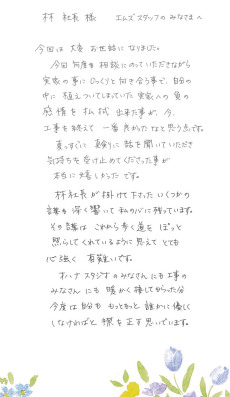 林 社長 様　エムズスタッフの みなさまへ
今回は 大変 お世話になりました。
今回 何度も 相談にのっていただきながら
実家の事に じっくりと向き合う事で、自分の
中に 植えついてしまっていた 実家への 負の
感情を 払拭 出来た事が、今、
工事を終えて 一番 良かったなと思う点です。
真っすぐに 真剣に 話を聞いていただき
気持ちを 受け止めてくださった事が
本当に 嬉しかった です。
林社長が 掛けて下さった いくつかの
言葉が 深く 響いて 私の心に 残っています。
その言葉は これから歩く道を ぽっと
照らしてくれているように 思えて とても
心強く 有難いです。
オハナ スタジオの みなさんにも 工事の
みなさん にも 暖かく 接してもらった分
今度は 自分も もっともっと 誰かに 優しく
しなければと 襟を正す思いでいます。